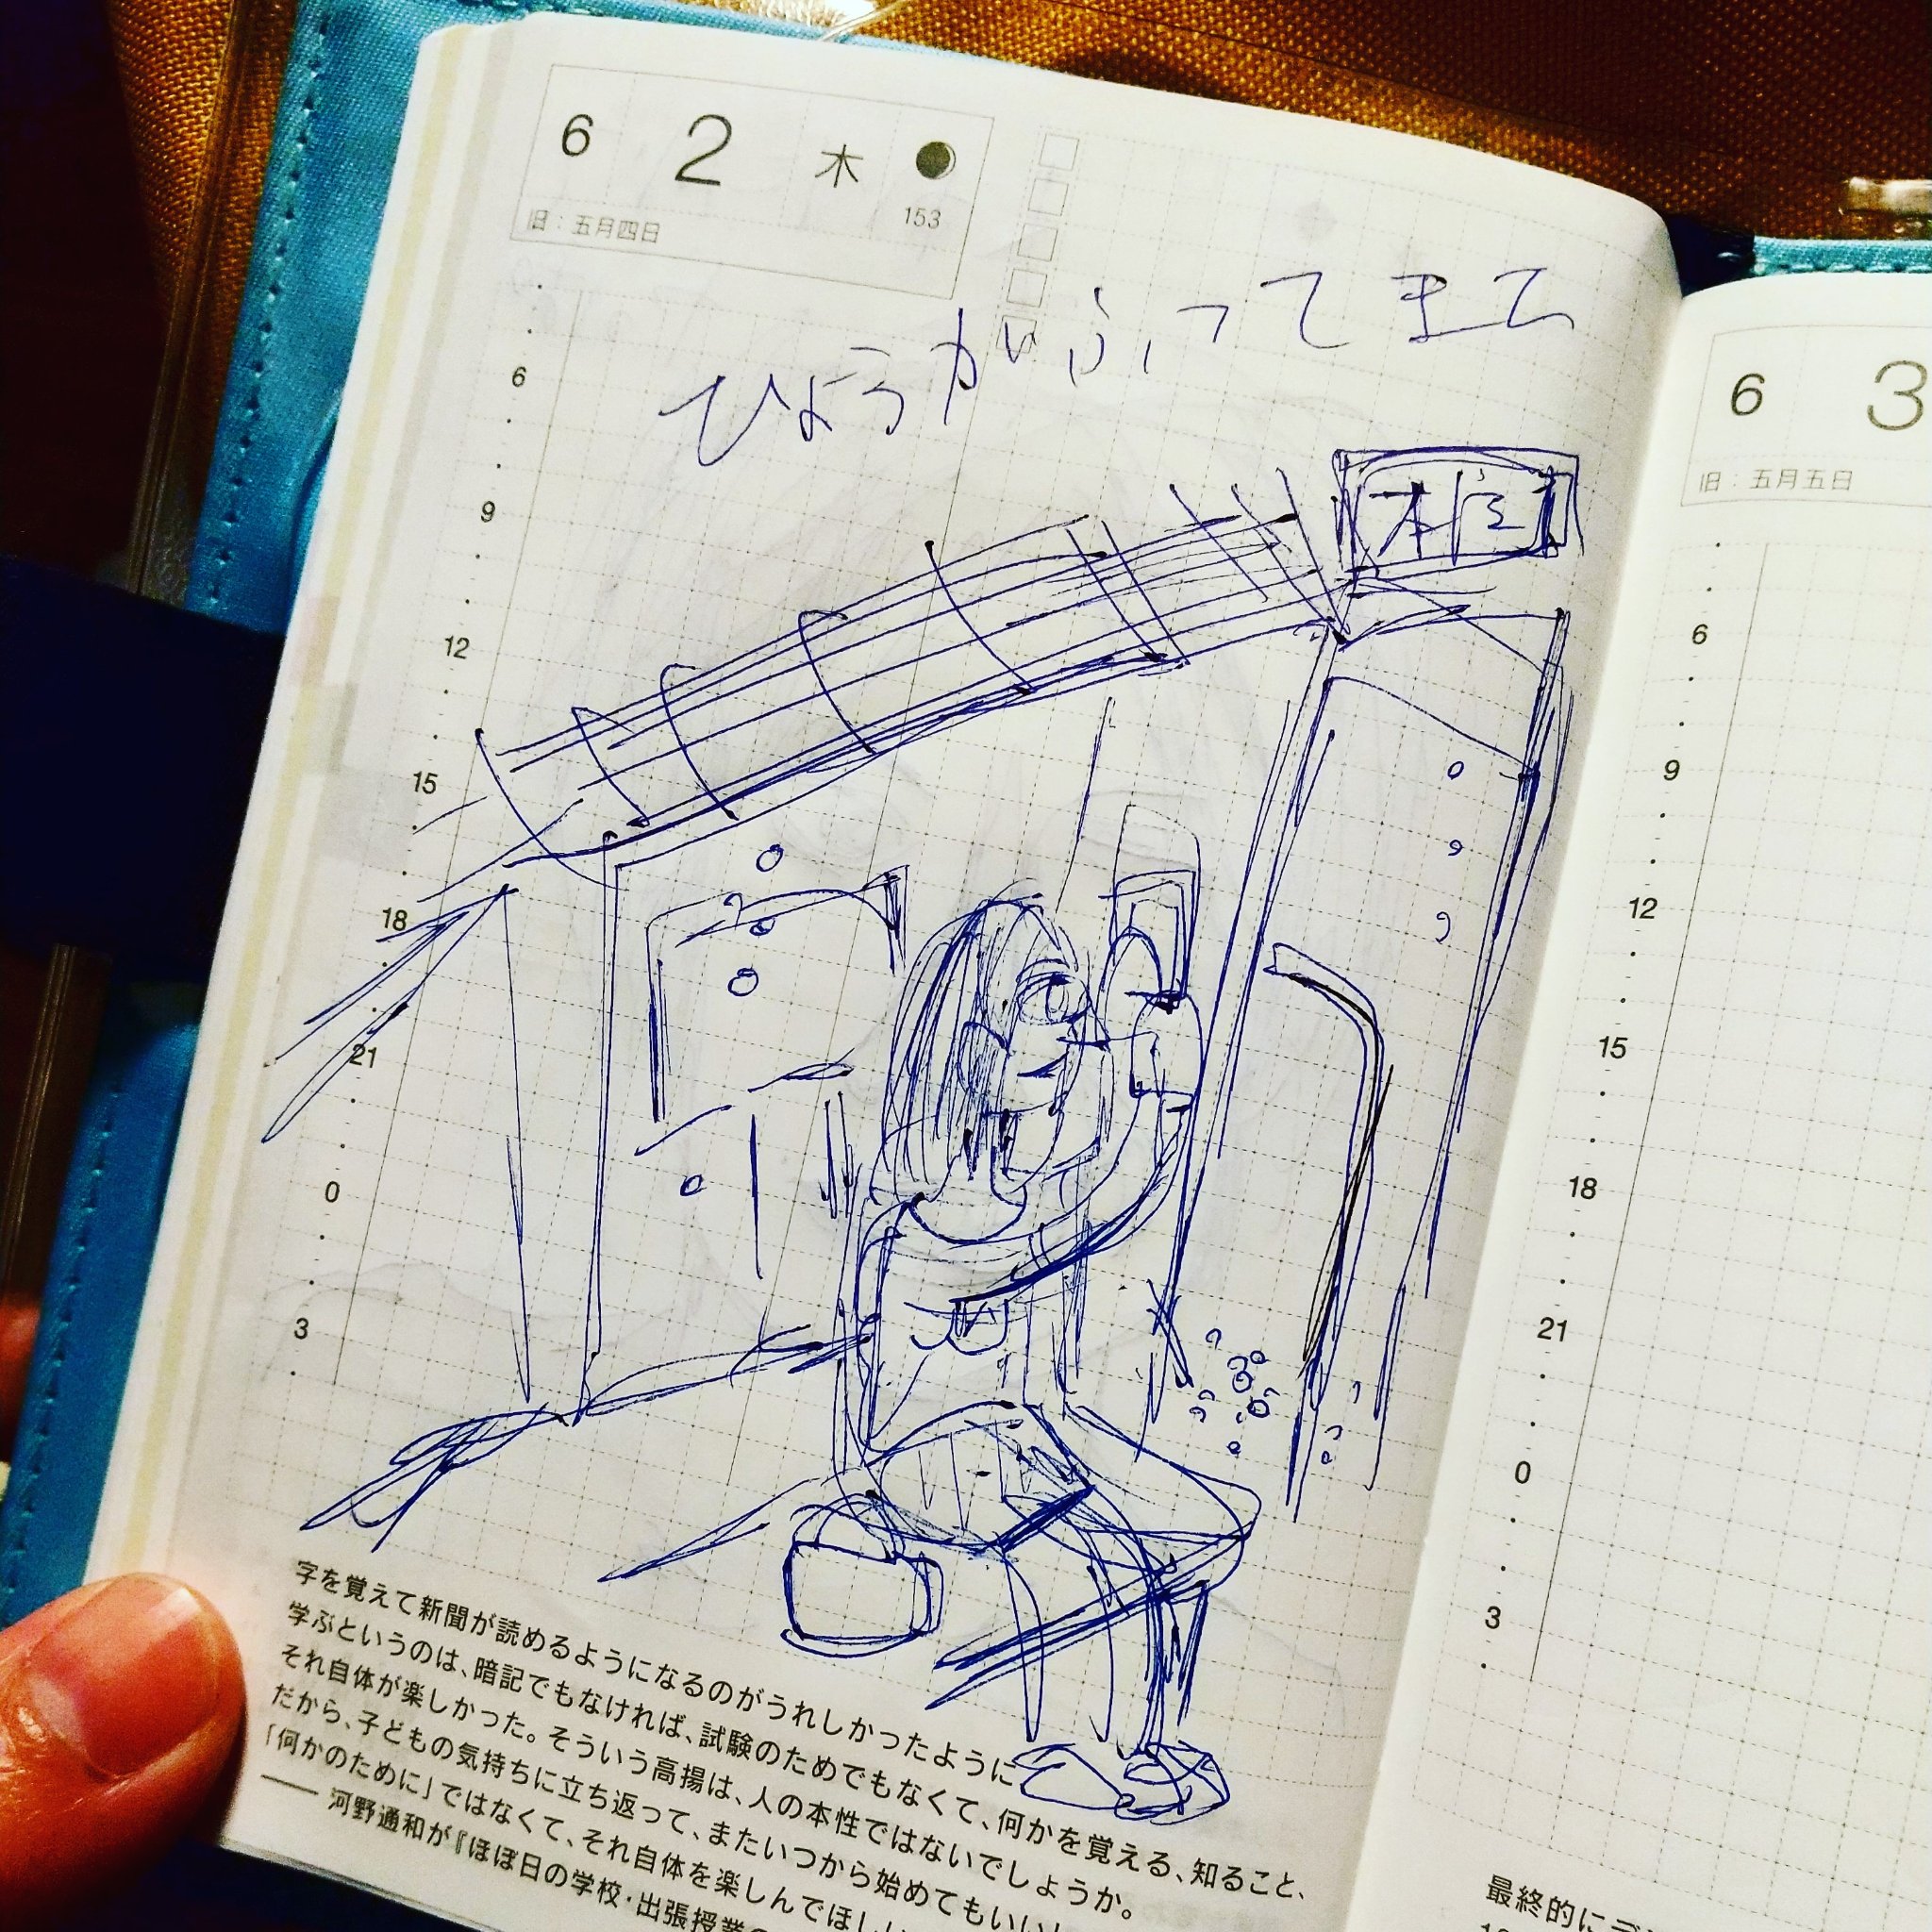 6 2 木
153
旧：五月四日
ひょうがふってきて
6
9
12
15
18
21
0
3
字を覚えて新聞が読めるようになるのがうれしかったように
学ぶというのは、暗記でもなければ、試験のためでもなくて、何かを覚える、知ること、
それ自体が楽しかった。そういう高揚は、人の本性ではないでしょうか。
だから、子どもの気持ちに立ち返って、またいつから始めてもいいし
「何かのために」ではなくて、それ自体を楽しんでほしい
── 河野通和が『ほぼ日の学校・出張授業の
6 3
旧：五月五日
6
9
12
15
18
21
0
3
最終的にデ